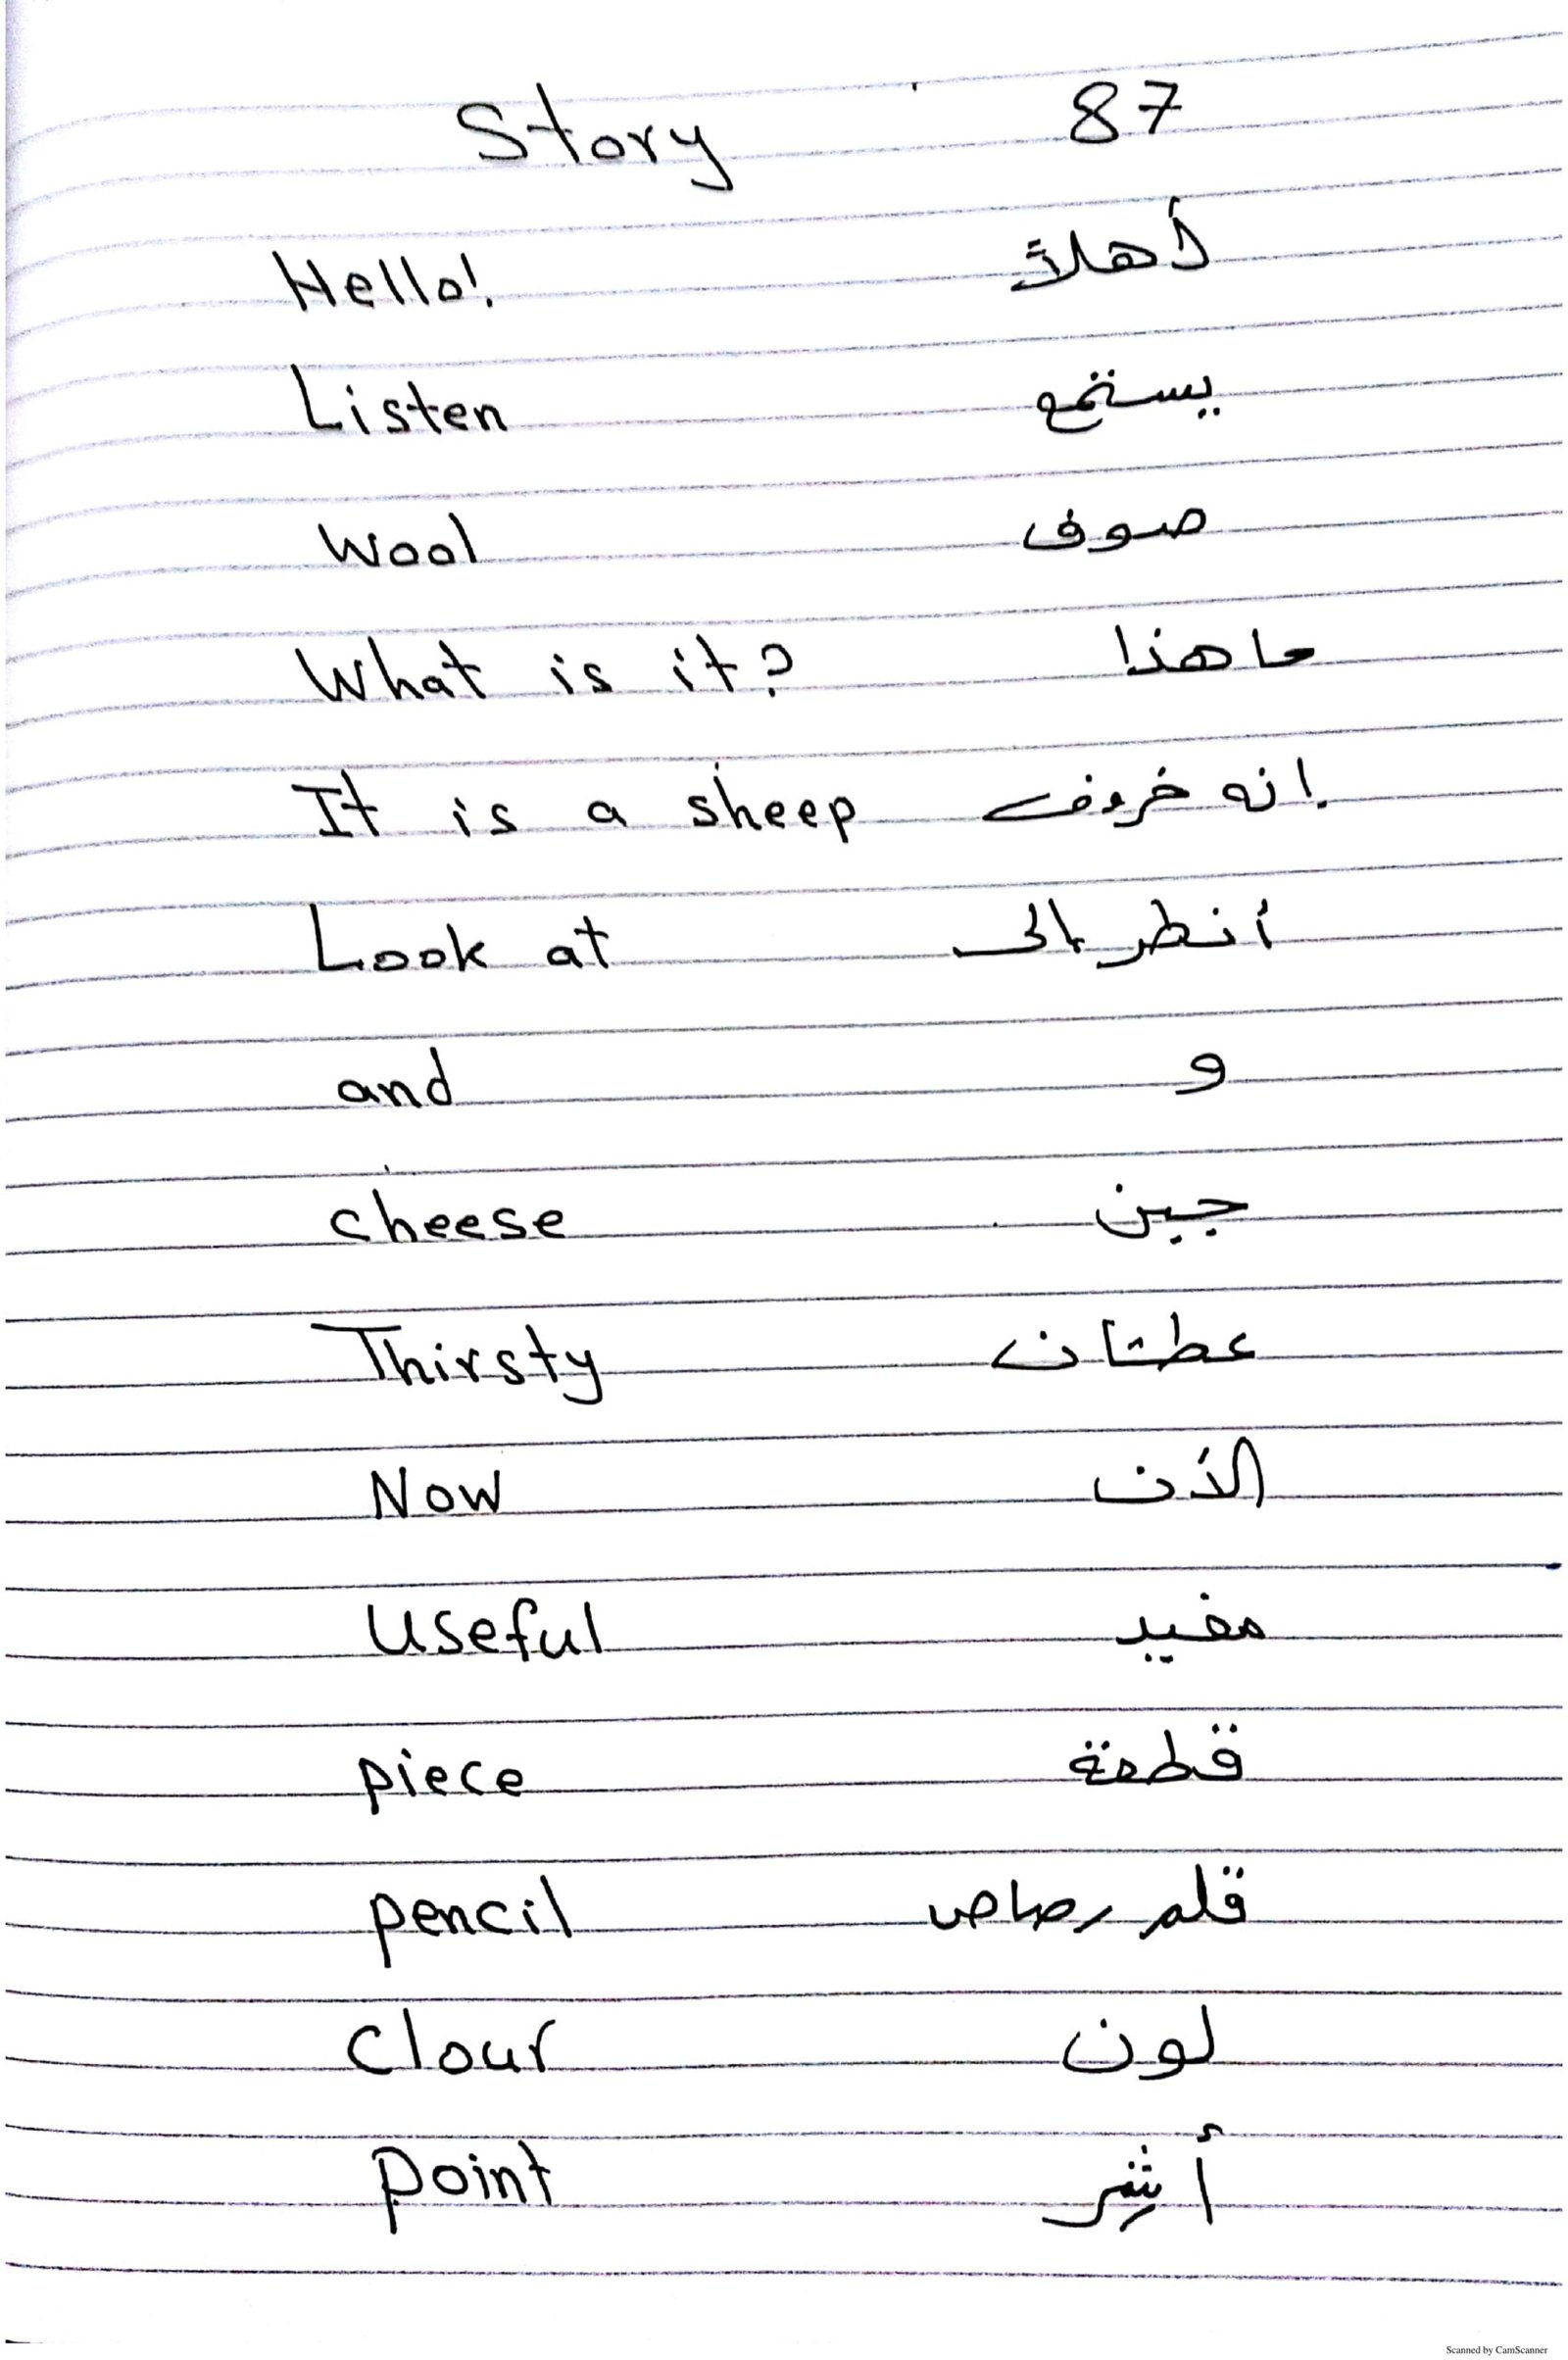 Story 87
Hello! أهلاً
Listen يستمع
Wool صوف
What is it? ما هذا
It is a sheep إنه خروف
Look at أنظر إلى
and و
cheese جبن
Thirsty عطشان
Now الأن
Useful مفيد
piece قطعة
pencil قلم رصاص
Clour لون
point أشِر
Scanned by CamScanner